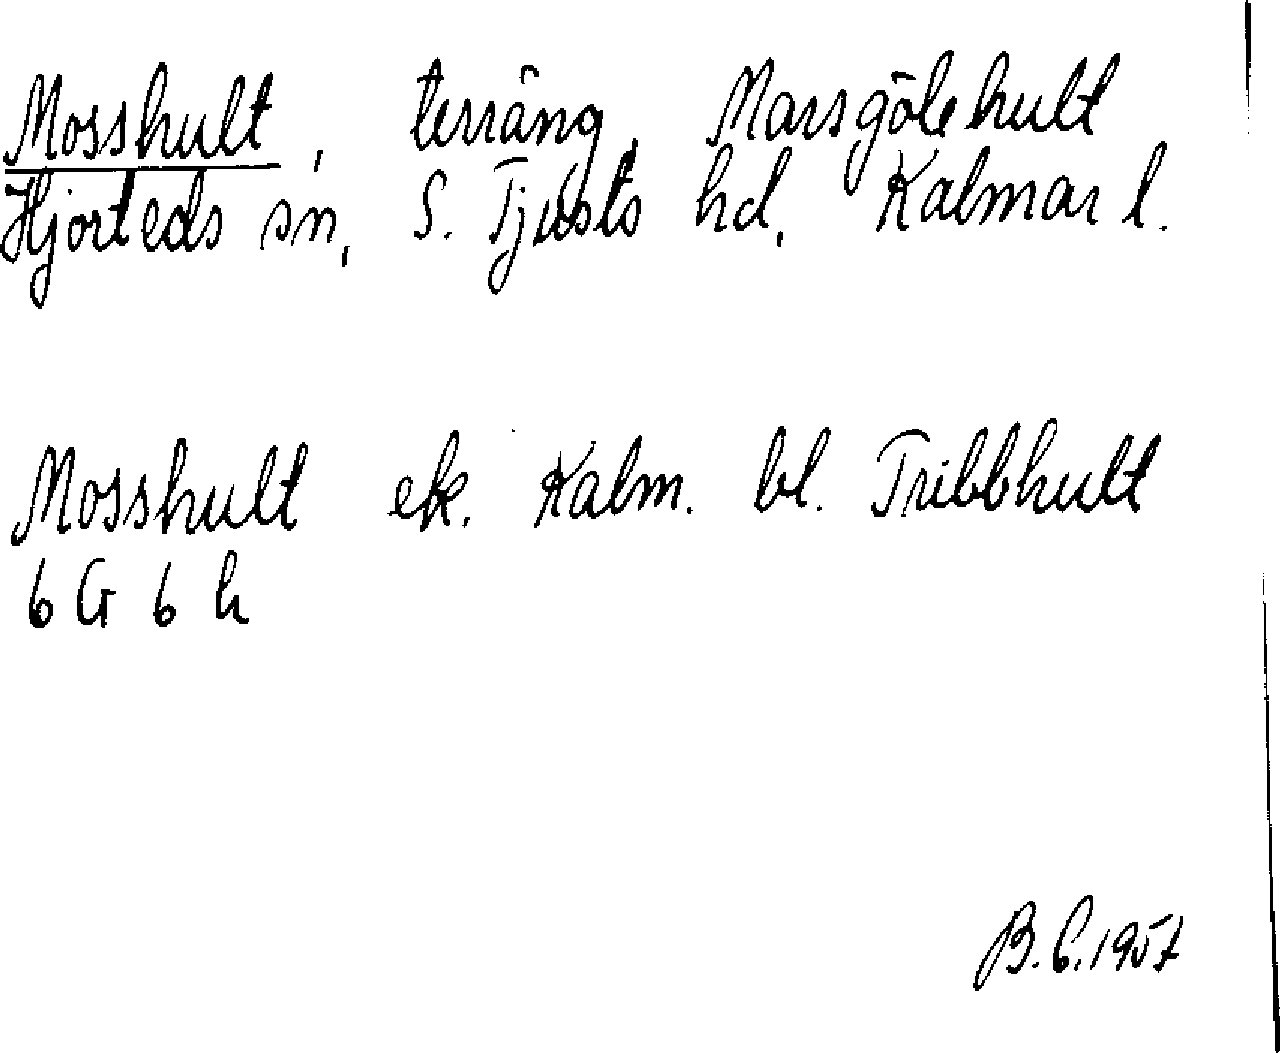 Mosshult, terräng, Marsgölehult
Hjorteds sn, S. Tjusts hd, Kalmar l.
Mosshult ek. Kalm. bl. Tribbhult
6 G 6 h
B.C.1957